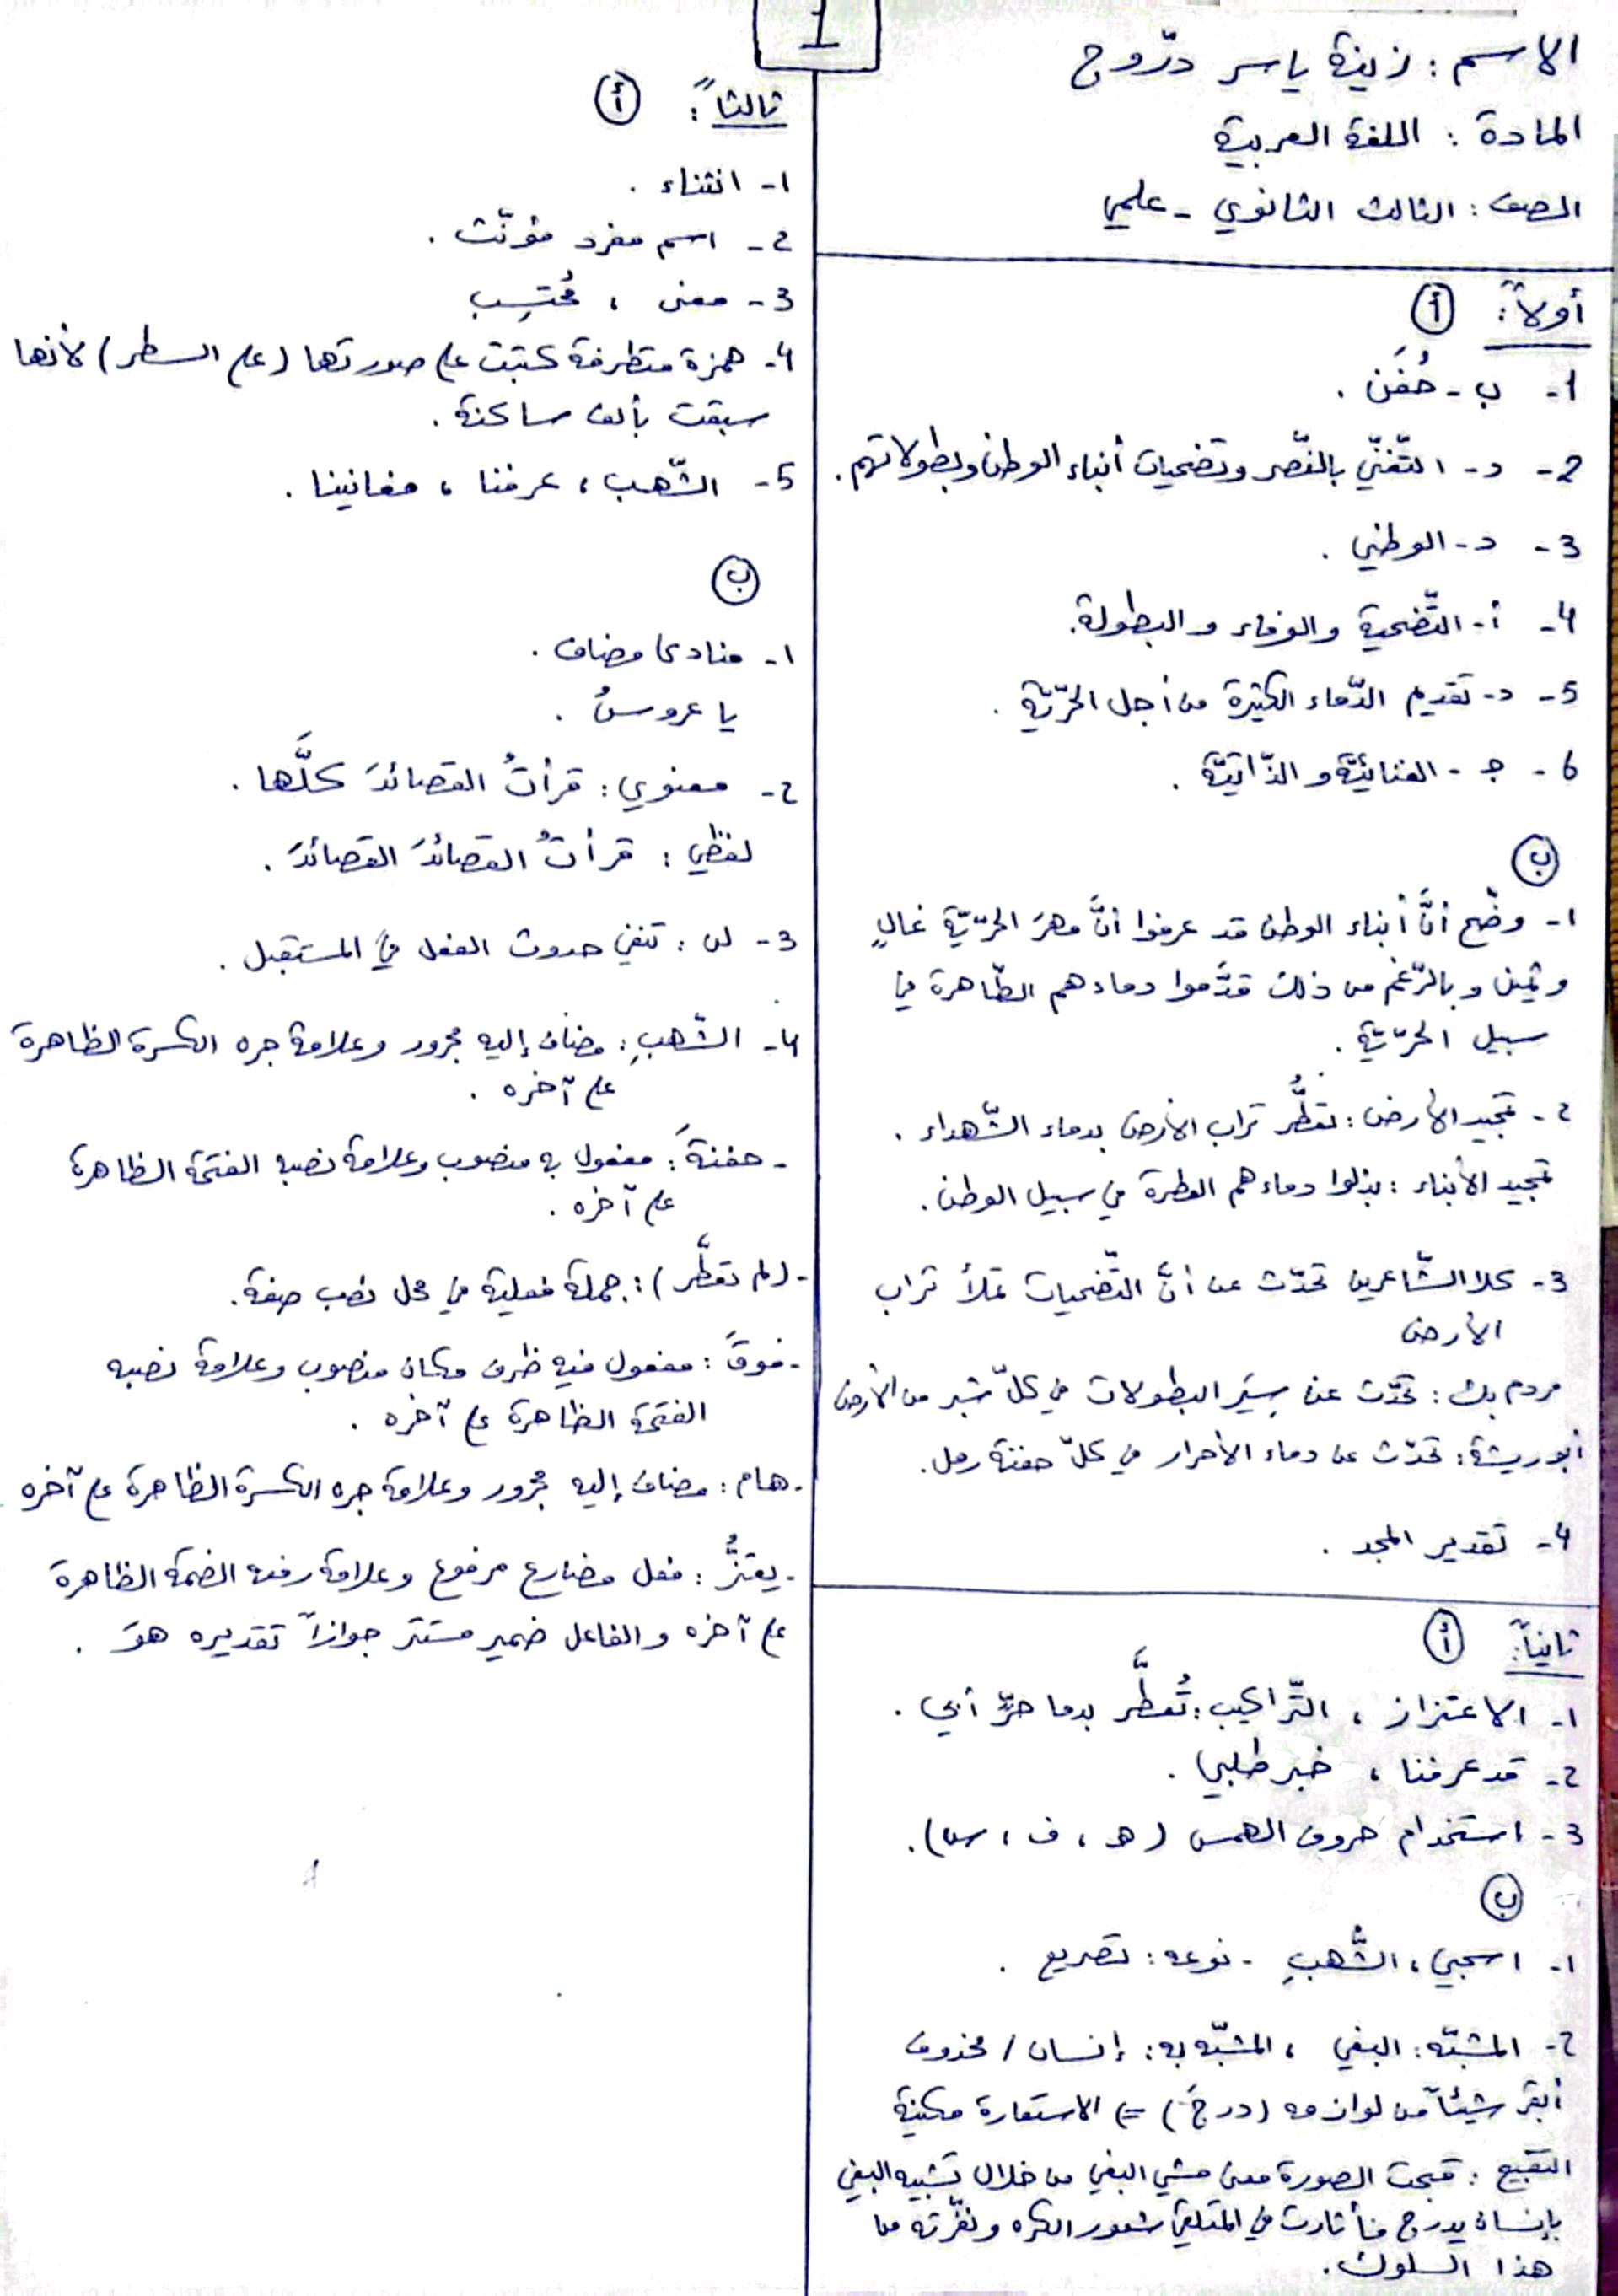 1
الاسم : زينة ياسر درّوج
المادة : اللغة العربية
الصف : الثالث الثانوي - علمي
أولاً : أ
1- ب - حُفَن .
2- د - التّغنّي بالنّصر وتضحيات أبناء الوطن وبطولاتهم .
3- د - الوطني .
4- أ - التّضحية والوفاء و البطولة .
5- د - تقديم الدّماء الكثيرة من أجل الحرّيّة .
6- جـ - الغنائيّة و الذّاتيّة .
ب
1- وضّح أنَّ أبناء الوطن قد عرفوا أنَّ مهرَ الحرّيّة غالٍ
وثمين و بالرّغم من ذلك قدَّموا دماءهم الطّاهرة في
سبيل الحرّيّة .
2- تمجيد الأرض : تعطُّر تراب الأرض بدماء الشّهداء .
تمجيد الأبناء : بذلوا دماءهم العطرة في سبيل الوطن .
3- كلا الشّاعرين تحدّث عن أنَّ التّضحيات تملأ تراب
الأرض
مردم بك : تحدّث عن سِيَر البطولات في كلّ شبر من الأرض
أبو ريشة : تحدّث عن دماء الأحرار في كلّ حفنة رمل .
4- تقدير المجد .
ثانياً : أ
1- الاعتزاز ، التّراكيب : تُعطَّر بدما حرٍّ أبي .
2- قد عرفنا ، خبر طلبي .
3- استخدام حروف الهمس ( هـ ، ف ، س ) .
ب
1- اسحبي ، الشُّهبِ - نوعه : تصريع .
2- المشبّه : البغي ، المشبّه به : إنسان / محذوف
أبقى شيئاً من لوازمه ( درجَ ) => الاستعارة مكنية
التقبيح : قبحت الصورة معنى مشي البغي من خلال تشبيه البغي
بإنسان يدرج فأثارت في المتلقي شعور الكره ونفّرته من
هذا السلوك .
ثالثاً : أ
1- انثناء .
2- اسم مفرد مؤنّث .
3- معنى ، مُحتسِب
4- همزة متطرفة كتبت على صورتها (على السطر) لأنها
سبقت بألف ساكنة .
5- الشّهب ، عرفنا ، مغانينا .
ب
1- منادى مضاف .
يا عروسُ .
2- معنوي : قرأتُ القصائدَ كلَّها .
لفظي : قرأتُ القصائدَ القصائدَ .
3- لن : تنفي حدوث الفعل في المستقبل .
4- الشّهبِ : مضاف إليه مجرور وعلامة جره الكسرة الظاهرة
على آخره .
- حفنةَ : مفعول به منصوب وعلامة نصبه الفتحة الظاهرة
على آخره .
- (لم تعطَّر) : جملة فعلية في محل نصب صفة .
- فوقَ : مفعول فيه ظرف مكان منصوب وعلامة نصبه
الفتحة الظاهرة على آخره .
- هام : مضاف إليه مجرور وعلامة جره الكسرة الظاهرة على آخره
- يعتزُّ : فعل مضارع مرفوع وعلامة رفعه الضمة الظاهرة
على آخره والفاعل ضمير مستتر جوازاً تقديره هوَ .